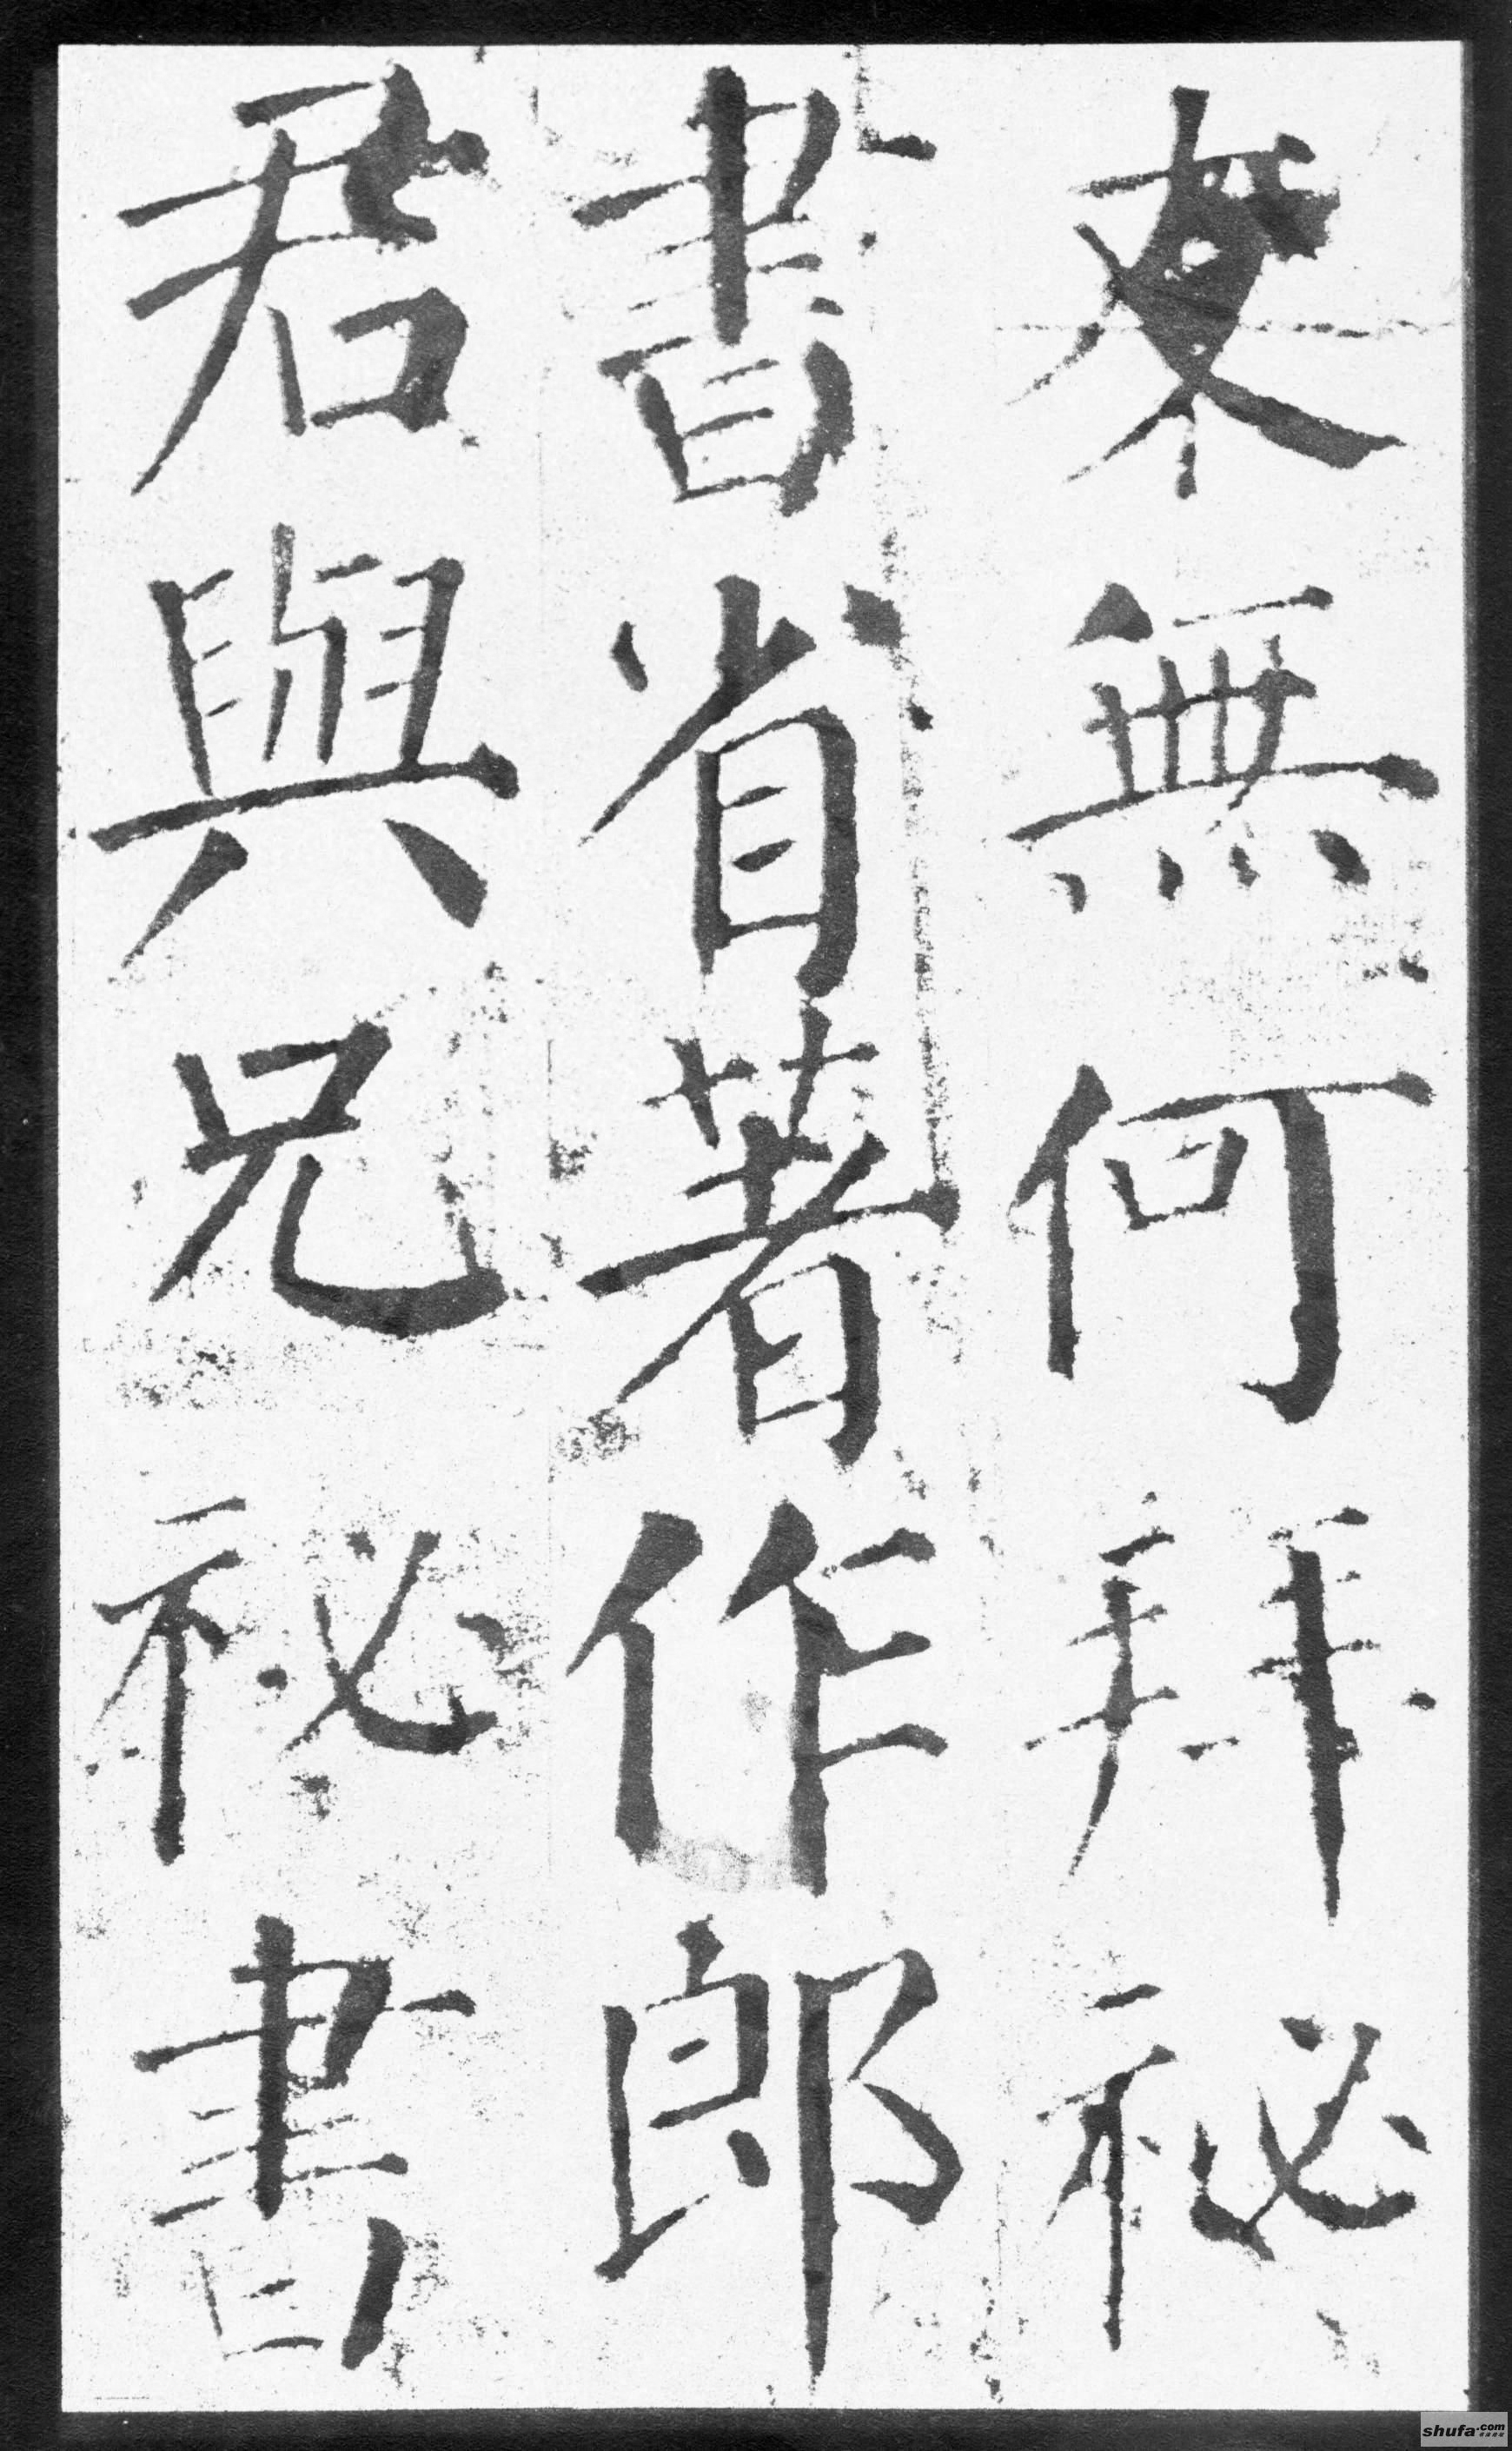 友無何拜祕
書省著作郎
君與兄祕書
shufa.com